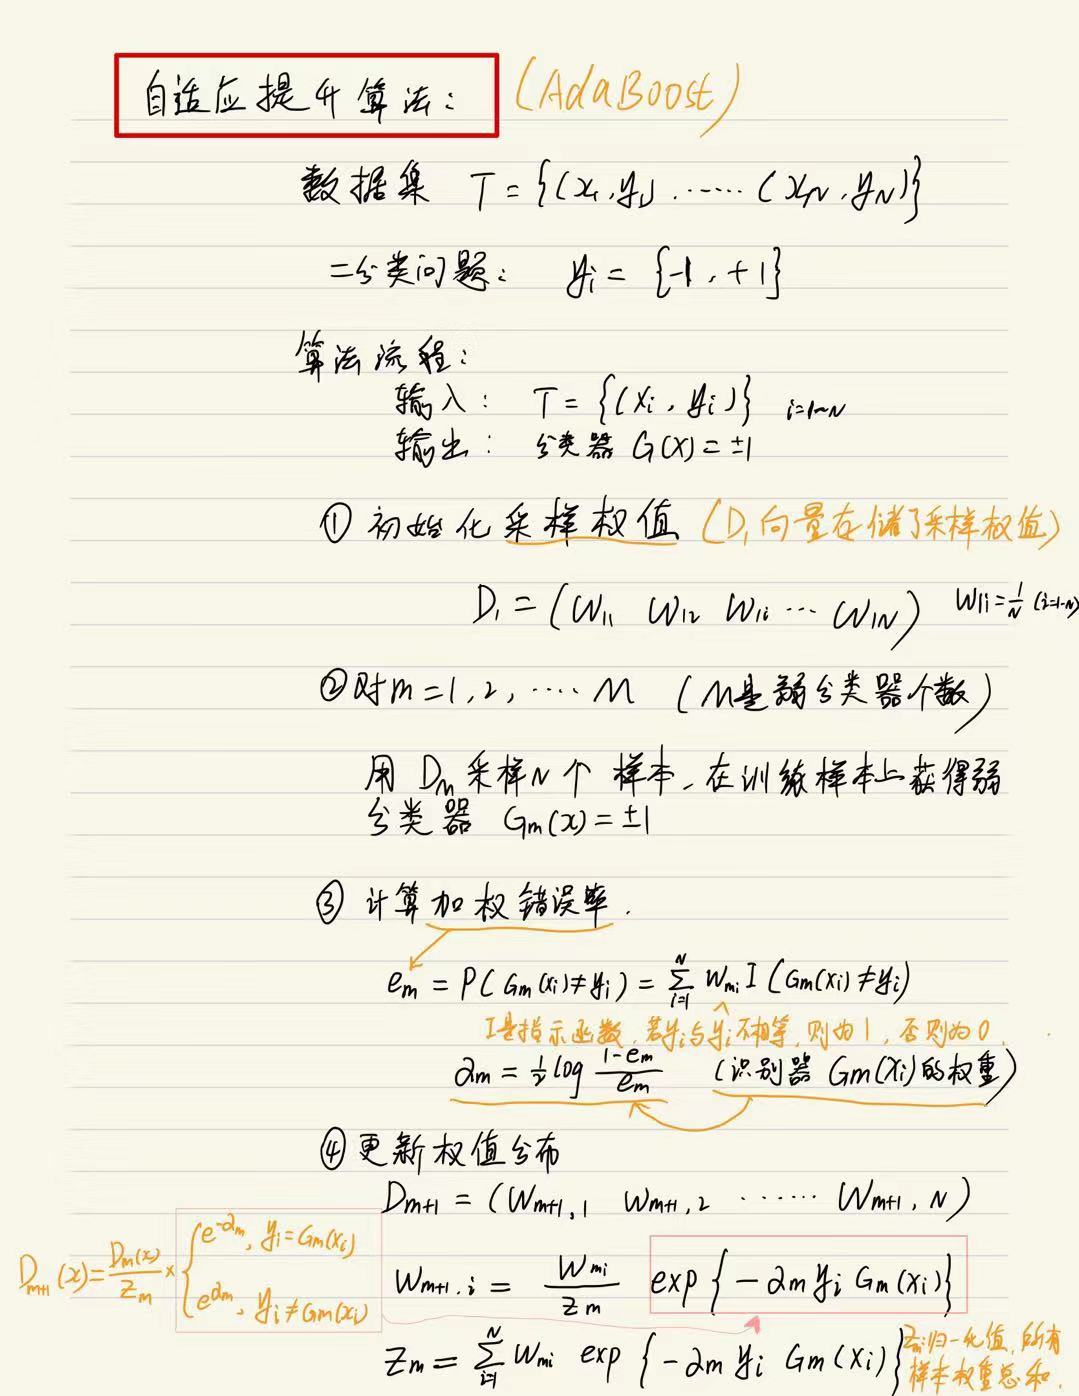 自适应提升算法： (AdaBoost)
数据集 T = {(x₁,y₁)......(xN,yN)}
二分类问题： yi = {-1,+1}
算法流程：
输入： T = {(xi,yi)} i=1~N
输出： 分类器 G(x) = ±1
① 初始化采样权值 (D₁向量存储了采样权值)
D₁ = (W₁₁ W₁₂ W₁i ... W₁N) W₁i = 1/N (i=1~N)
② 对m = 1, 2, .... M (M是弱分类器个数)
用 Dm 采样N个样本,在训练样本上获得弱
分类器 Gm(x) = ±1
③ 计算加权错误率.
em = P(Gm(xi)≠yi) = Σ_{i=1}^{N} Wmi I(Gm(xi)≠yi)
I是指示函数,若yi与yi不相等,则为1,否则为0.
αm = ½ log (1-em)/em (识别器 Gm(xi)的权重)
④ 更新权值分布
Dm+1 = (Wm+1,1 Wm+1,2 ...... Wm+1,N)
Dm+1(x) = Dm(x)/Zm × { e^{-αm}, yi=Gm(xi)
e^{αm}, yi≠Gm(xi)
Wm+1,i = Wmi/Zm exp{-αm yi Gm(xi)}
Zm = Σ_{i=1}^{N} Wmi exp{-αm yi Gm(xi)} Zm:归一化值,所有
样本权重总和.